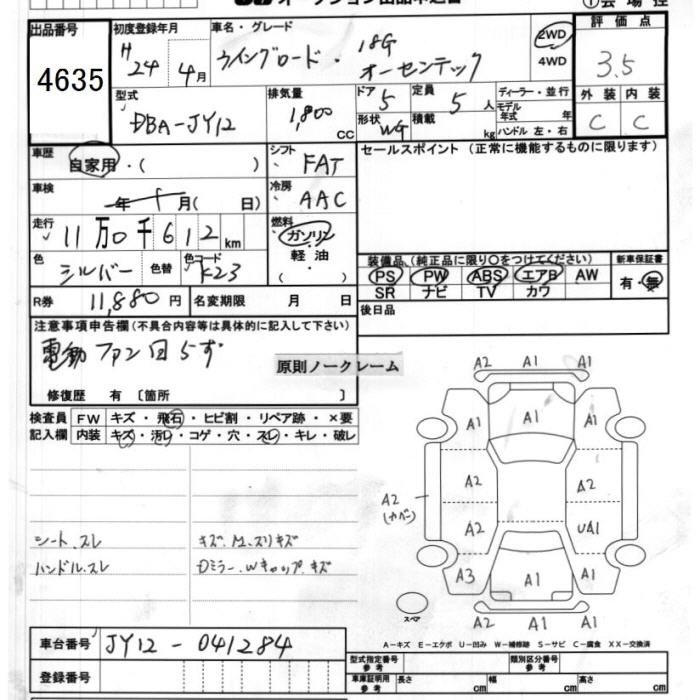 出品番号
4635
初度登録年月
H 24 4月
車名・グレード
ウイングロード・18G
オーセンテック
2WD
4WD
評価点
3.5
型式
DBA-JY12
排気量
1,800
CC
ドア 5
定員 5 人
ディーラー・並行
形状 WG
積載 kg
モデル年式 年
ハンドル 左・右
外装 内装
C C
車歴
自家用・( )
シフト
FAT
セールスポイント(正常に機能するものに限ります)
車検
年 月( 日)
冷房
AAC
走行
11万0千612km
燃料
ガソリン
軽油
色
シルバー
色替
色コード
K23
装備品(純正品に限り〇をつけてください)
新車保証書
PS PW ABS エアB AW
有・無
SR ナビ TV カワ
R券 11,880円
名変期限 月 日
後日品
注意事項申告欄(不具合内容等は具体的に記入して下さい)
電動ファン回らず
原則ノークレーム
修復歴 有 〔箇所 〕
検査員記入欄
FW キズ・飛石・ヒビ割・リペア跡・×要
内装 キズ・汚レ・コゲ・穴・スレ・キレ・破レ
A2 A1 A1
A1 A1 A1
A2 A2
A2
A2 UA1
A3 A1 A1
A2 A1 A1
スペア
シート.スレ
キズ.M.スリキズ
ハンドル.スレ
Dミラー.Wキャップ.キズ
車台番号
JY12-041284
A-キズ E-エクボ U-凹み W-補修跡 S-サビ C-腐食 XX-交換済
登録番号
型式指定番号
参考
類別区分番号
参考
車庫証明用
参考
長さ cm
幅 cm
高さ cm